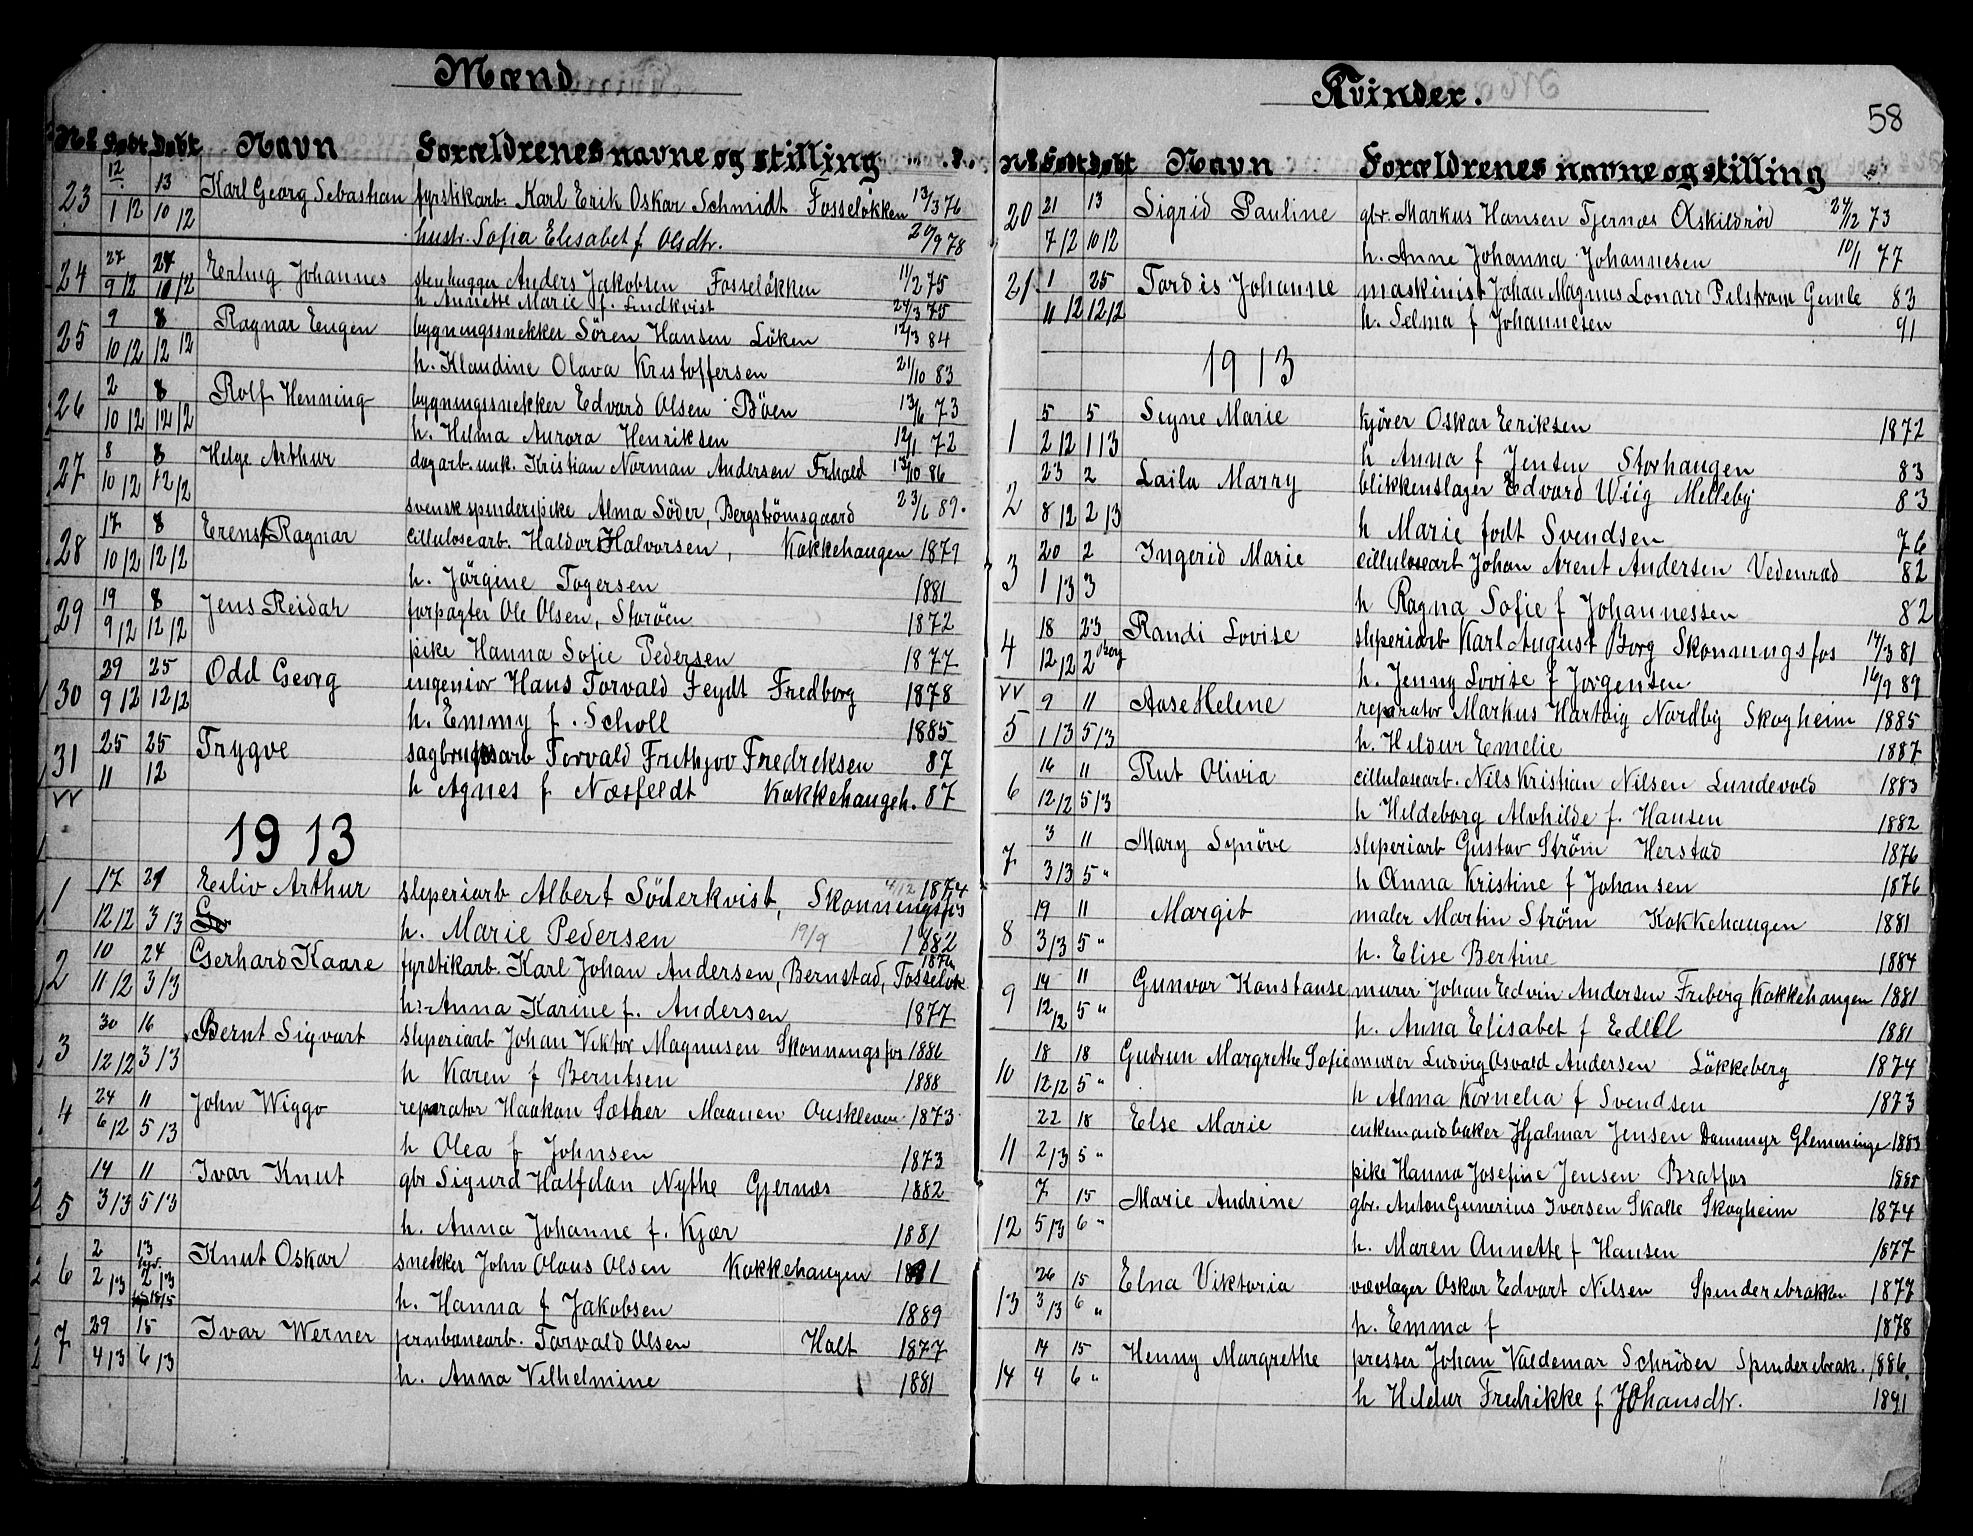 Mænd
No Født Døbt Navn Forældrenes navne og stilling
23 12/1 12 13/10 12 Karl Georg Sebastian fyrstikarb. Karl Erik Oskar Schmidt Fosseløkken 13/3 76
hustr. Sofia Elisabet f Olsdtr. 20/9 78
24 27/9 12 27/10 12 Erling Johannes stenhugger Anders Jakobsen Fosseløkken 11/2 75
h Annette Marie f. Lindkvist 24/3 75
25 9/10 12 8/12 12 Ragnar Eugen bygningssnekker Sören Hansen Löken 12/3 84
h. Klaudine Olava Kristoffersen 21/10 83
26 2/10 12 8/12 12 Rolf Henning bygningssnekker Edvard Olsen Böen 13/6 73
h. Hilma Aurora Henriksen 12/1 72
27 8/10 12 8/12 12 Helge Arthur dagarb. unk. Kristian Norman Andersen 13/10 86
svensk spinderipike Alma Söder, Bergströmsgaard 23/6 89.
28 17/10 12 8/12 12 Ernst Ragnar cilluloscarb. Haldor Halvorsen, Kokkehaugen 1879
h. Jörgine Togersen 1881
29 19/9 12 8/12 12 Jens Reidar forpagter Ole Olsen, Storöen 1872
pike Hanna Sofie Pedersen 1877
30 29/9 12 25/12 12 Odd Georg ingeniør Hans Torvald Feydt Fredborg 1878
h. Emmy f. Scholl 1885
31 25/11 25/12 Trygve sagbrugsarb Torvald Frithjov Fredriksen 87
h Agnes f Næsfeldt Kokkehaugen. 87
1913
1 17/12 12 24/3 13 Eiliv Arthur sliperiarb Albert Söderkvist, Skonningsfos 4/12 1874
h. Marie Pedersen 19/9 1882
2 10/11 12 24/3 13 Gerhard Kaare fyrstikarb. Karl Johan Andersen, Bernstad, Fosseløk 1876
h. Anna Karine f. Andersen 1877
3 30/12 12 16/3 13 Bernt Sigvart sliperiarb Johan Viktor Magnusen Skonningsfos 1886
h Karen f Berntsen 1888
4 24/6 12 11/5 13 John Wiggo reparatør Haakon Sæther Maanen 1873
h Olea f Johnsen 1873
5 14/3 13 11/5 13 Ivar Knut gbr Sigurd Halfdan Nythe Gjernæs 1882
h. Anna Johanne f. Kjær 1881
6 2/2 13 13/2 13 Knut Oskar snekker John Olaus Olsen Kokkehaugen 1881
h. Hanna f Jakobsen 1889
7 29/4 13 15/6 13 Ivar Werner jernbanearb. Torvald Olsen Halt 1877
h. Anna Vilhelmine 1881
Kvinder.
58
No Født Døbt Navn Forældrenes navne og stilling
20 21/7 12 13/10 12 Sigrid Pauline gbr. Markus Hansen Tjernæs Askildrød 24/12 73
h. Anne Johanna Johannesen 10/1 77
21. 1/11 12 25/12 12 Tordis Johanne maskinist Johan Magnus Lonard Pilstrøm Gimle 83
h. Selma f Johannesen 91
1913
1 5/2 12 5/1 13 Signe Marie kjører Oskar Eriksen 1872
h Anna f Jensen Storhaugen 83
2 23/8 12 2/2 13 Laila Marry blikkenslager Edvard Wiig Melleby 83
h Marie født Svendsen 76
3 20/1 13 2/3 Ingerid Marie cilluloscarb Johan Arent Andersen Vedenrød 82
h Ragna Sofie f Johannessen 82
4 18/12 12 23/2 Borg Randi Lovise sliperiarb Karl August Borg Skonningsfos 14/3 81
h. Jenny Lovise f Jørgensen 16/9 89
5 9/1 13 11/5 13 Aase Helene reparatør Markus Hartvig Nordby Skogheim 1885
h. Hildur Emelie 1887
6 16/12 12 11/5 13 Rut Olivia cilluloscarb. Nils Kristian Nilsen Lundevold 1883
h Hildeborg Alvhilde f. Hansen 1882
7 3/3 13 11/5 " Mary Synöve sliperiarb Gustav Ström Herstad 1876
h Anna Kristine f Johansen 1876
8 19/3 13 11/5 " Margit maler Martin Strøm Kokkehaugen 1881
h. Elise Bertine 1884
9 14/12 12 11/5 " Gunvor Konstanse murer Johan Edvin Andersen Friberg Kokkehaugen 1881
h. Anna Elisabet f Edell 1881
10 18/12 12 18/5 " Gudrun Margrethe Sofie murer Ludvig Osvald Andersen Lökkeberg 1874
h Alma Kornelia f Svendsen 1873
11 22/2 13 18/5 " Else Marie enkemand baker Hjalmar Jensen Dammyr Glemminge 1883
pike Hanna Josefine Jensen Bratfos 1885
12 7/5 13 15/6 " Marie Andrine gbr. Anton Gunerius Iversen Skalle Skogheim 1874
h. Maren Annette f Hansen 1877
13 26/3 13 15/6 " Elna Viktoria vævlager Oskar Edvart Nilsen Spinderibrakken 1877
h. Emma f 1878
14 14/4 15/6 " Henny Margrethe presser Johan Valdemar Schrøder Spinderibrak. 1886.
h Hildur Fredrikke f Johansdtr. 1891